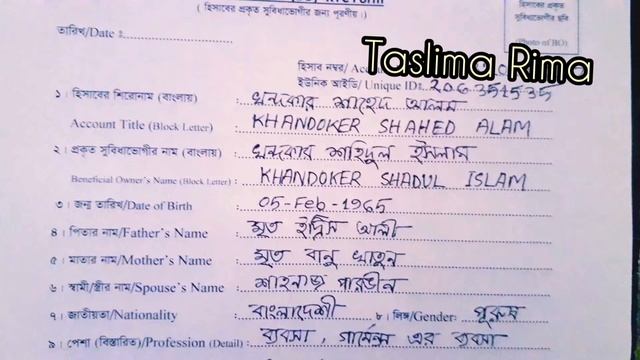 ( হিসাবের প্রকৃত সুবিধাভোগীর জন্য পূরণীয়।)
হিসাবের প্রকৃত
সুবিধাভোগীর ছবি
(Photo of BO)
তারিখ/Date :
Taslima Rima
হিসাব নম্বর/
ইউনিক আইডি/ Unique ID:. 206354535
১। হিসাবের শিরোনাম (বাংলায়) : খন্দকার শাহেদ আলম
Account Title (Block Letter) : KHANDOKER SHAHED ALAM
২। প্রকৃত সুবিধাভোগীর নাম (বাংলায়) : খন্দকার শাহিদুল ইসলাম
Beneficial Owner's Name (Block Letter) : KHANDOKER SHADUL ISLAM
৩। জন্ম তারিখ/Date of Birth : 05-Feb-1965
৪। পিতার নাম/Father's Name : মৃত ইদ্রিস আলী
৫। মাতার নাম/Mother's Name : মৃত বানু খাতুন
৬। স্বামী/স্ত্রীর নাম/Spouse's Name : শাহনাজ পারভীন
৭। জাতীয়তা/Nationality : বাংলাদেশী ৮। লিঙ্গ/Gender: পুরুষ
৯। পেশা (বিস্তারিত)/Profession (Detail) : ব্যবসা, গার্মেন্স এর ব্যবসা